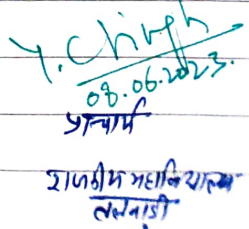 Y. Singh
08.06.2023.
प्राचार्य
राजकीय महाविद्यालय
तलवाडी